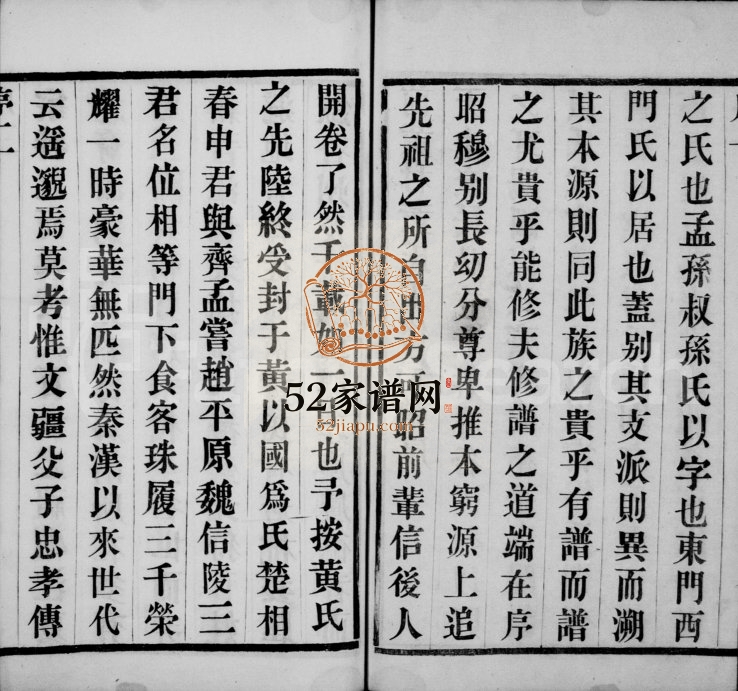 之氏也孟孫叔孫氏以字也東門西
門氏以居也蓋别其支派則異而溯
其本源則同此族之貴乎有譜而譜
之尤貴乎能修夫修譜之道端在序
昭穆别長幼分尊卑推本窮源上追
先祖之所自出方可昭前輩信後人
開卷了然千載如一日也予按黄氏
之先陸終受封于黄以國爲氏楚相
春申君與齊孟嘗趙平原魏信陵三
君名位相等門下食客珠履三千榮
耀一時豪華無匹然秦漢以來世代
云遥邈焉莫考惟文疆父子忠孝傳
序二
52家谱网
52jiapu.com